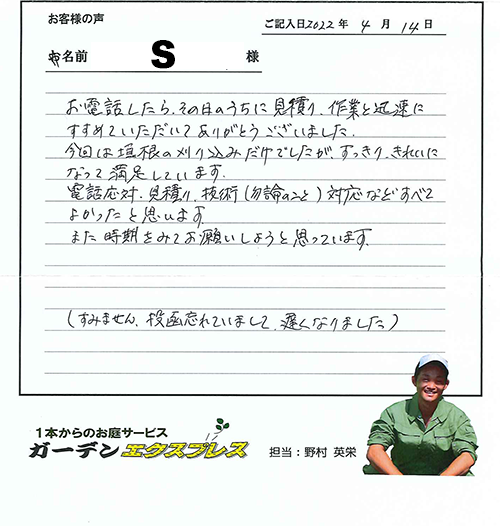 お客様の声
ご記入日2022年 4月 14日
お名前 S 様
お電話したら、その日のうちに見積り、作業と迅速に
すすめていただいてありがとうございました。
今回は垣根の刈り込みだけでしたが、すっきり、きれいに
なって満足しています。
電話応対、見積り、技術(勿論のこと)対応などすべて
よかったと思います。
また時期をみてお願いしようと思っています。
(すみません、投函忘れていまして、遅くなりました)
1本からのお庭サービス
ガーデンエクスプレス
担当:野村 英栄